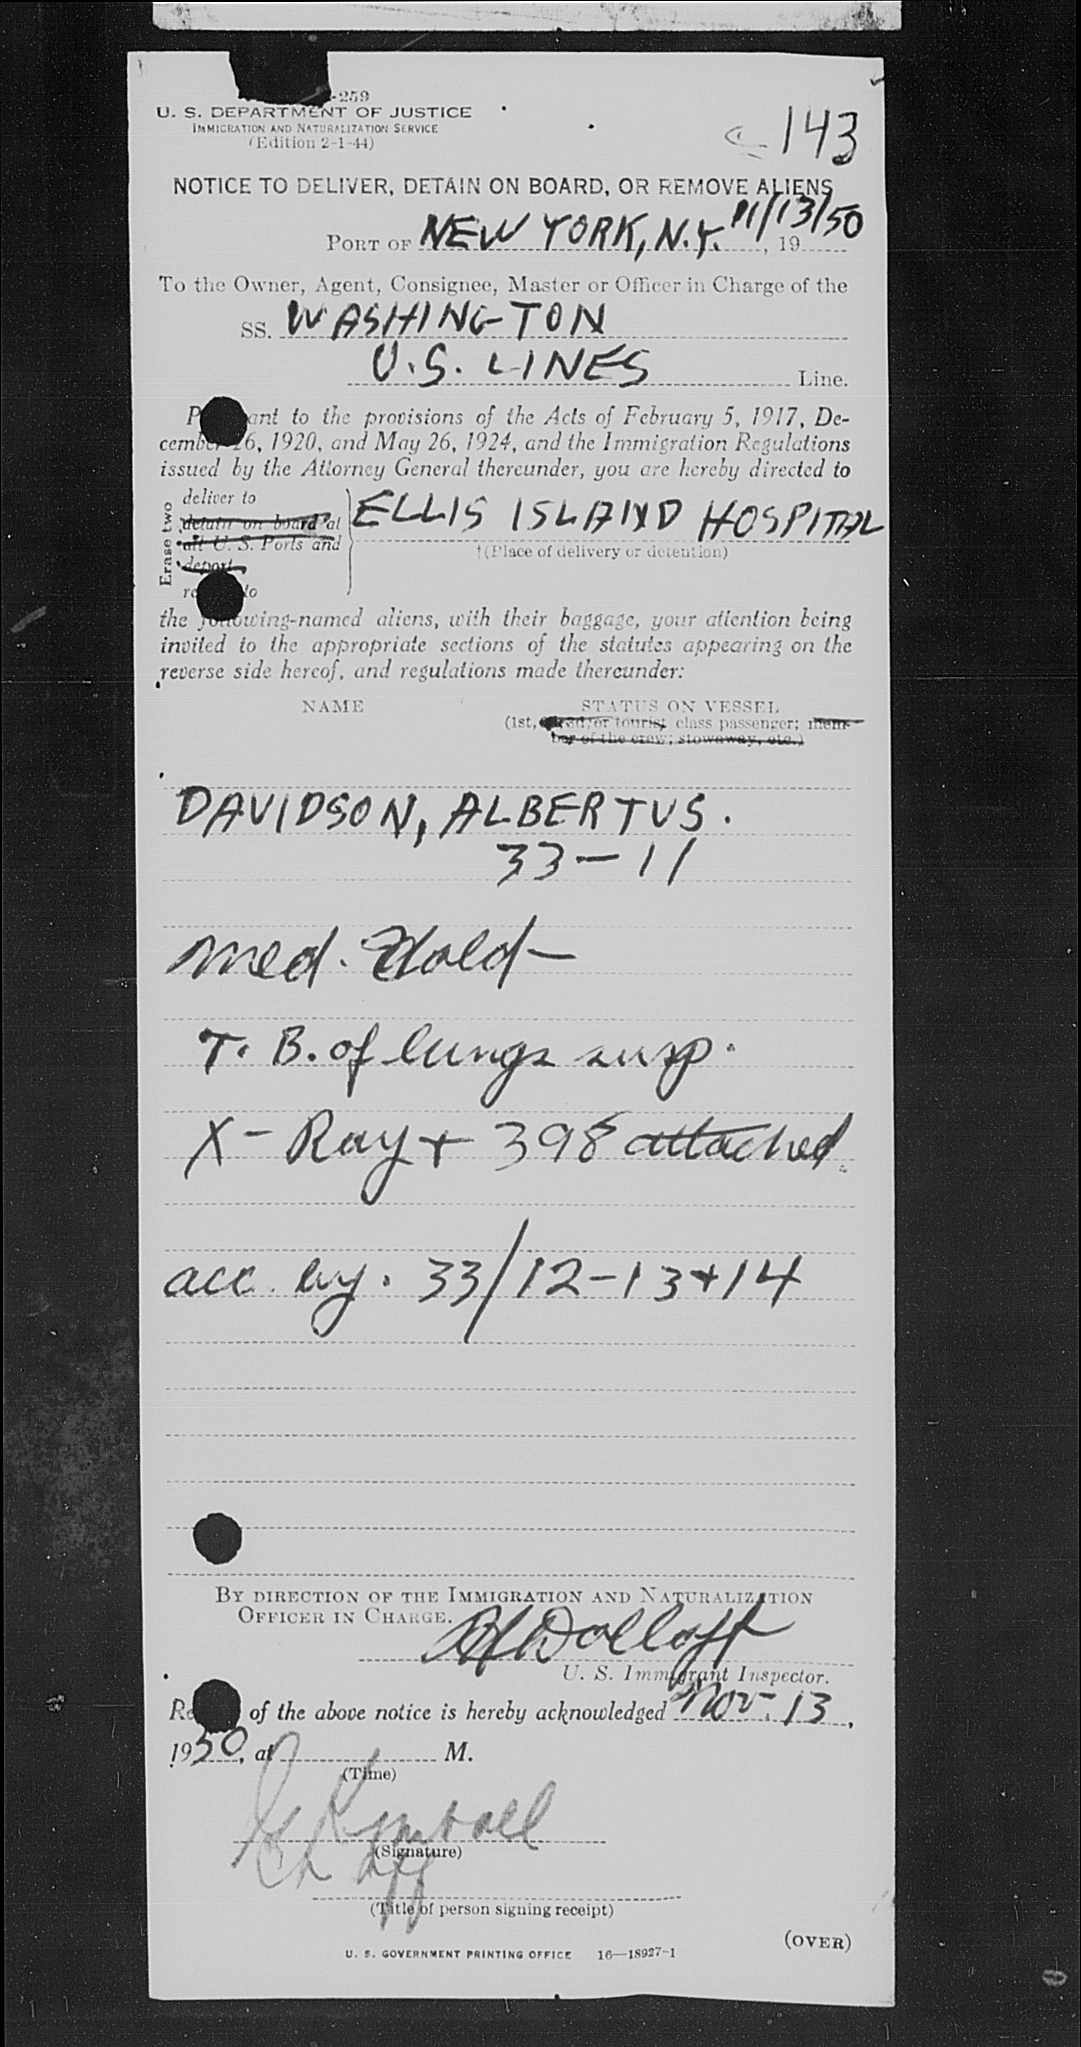 -259
U. S. DEPARTMENT OF JUSTICE
IMMIGRATION AND NATURALIZATION SERVICE
(Edition 2-1-44)
143
NOTICE TO DELIVER, DETAIN ON BOARD, OR REMOVE ALIENS
PORT OF NEW YORK, N.Y. 11/13/50, 19
To the Owner, Agent, Consignee, Master or Officer in Charge of the
SS. WASHINGTON
U.S. LINES Line.
P ant to the provisions of the Acts of February 5, 1917, De-
cember 26, 1920, and May 26, 1924, and the Immigration Regulations
issued by the Attorney General thereunder, you are hereby directed to
Erase two
deliver to
detain on board at
all U. S. Ports and
deport
re to
ELLIS ISLAND HOSPITAL
†(Place of delivery or detention)
the following-named aliens, with their baggage, your attention being
invited to the appropriate sections of the statutes appearing on the
reverse side hereof, and regulations made thereunder:
NAME STATUS ON VESSEL
(1st, or tourist class passenger; mem-
ber of the crew; stowaway, etc.)
DAVIDSON, ALBERTUS.
33-11
Med. Hold-
T. B. of lungs susp.
X-Ray + 398 attached.
acc. by. 33/12-13+14
BY DIRECTION OF THE IMMIGRATION AND NATURALIZATION
OFFICER IN CHARGE.
Dolloff
U. S. Immigrant Inspector.
Re of the above notice is hereby acknowledged Nov. 13,
1950, at M.
(Time)
Kimball
(Signature)
Ch Off
(Title of person signing receipt)
(OVER)
U. S. GOVERNMENT PRINTING OFFICE 16—18927-1